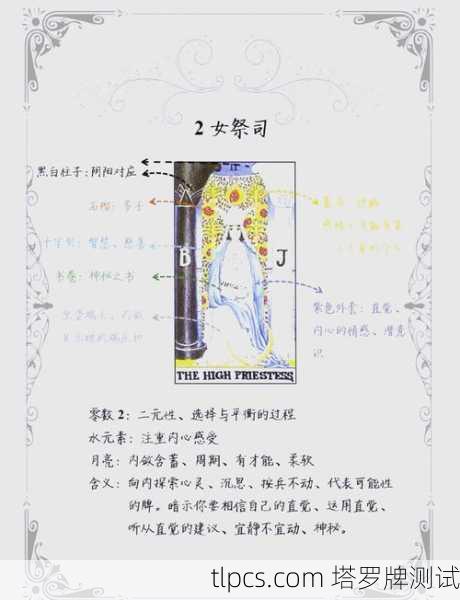 2 女祭司
黑白柱子:阴阳对应
石榴:多子
十字架:智慧、慈善
书卷:神秘之书
紫色外套:直觉、
内心的情感、潜意
识
B
J
THE HIGH PRIESTESS
零数2:二元性、选择与平衡的过程
水元素:注重内心感受
月亮:内敛含蓄、周期、有才能、柔软
含义:向内探索心灵、沉思、按兵不动、代表可能性
的牌。暗示你要相信自己的直觉、运用直觉、
听从直觉的建议、宜静不宜动、神秘。
tlpcs.com 塔罗牌测试